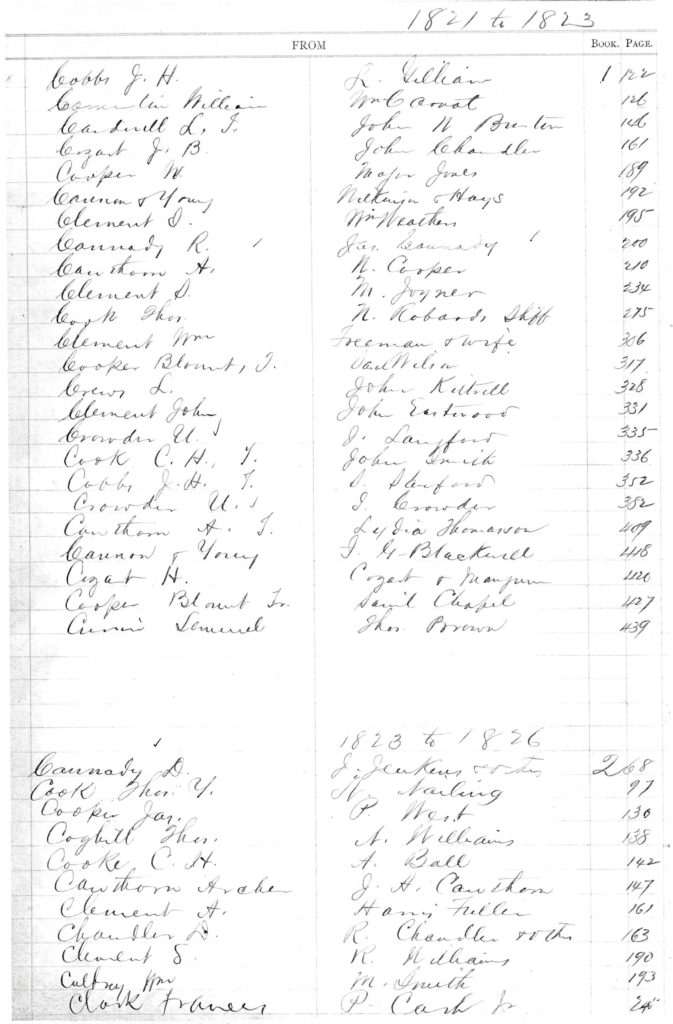 1821 to 1823
FROM BOOK. PAGE.
Cobbs J. H. L. Gilliam 1 122
William Wm 126
Cardwell L, T. John W Bruton 146
Cozart J. B. John Chandler 161
Cooper W Major Jones 189
Cannon & Young Wilkinson & Hays 192
Clement S. Wm Weathers 195
Cannady R. Jas. Cannady 200
Cawthorn A. N. Cooper 210
Clement S. M. Joyner 234
Cook Thos. N. Robards Shff 275
Clement Wm Freeman & wife 306
Cooper Blount, T. Wilson 317
Crews L. John Kittrell 328
Clement John John Eastwood 331
Crowder U. J. Langford 335
Cook C. H, T. John Smith 336
Cobbs J. H. T. S. 352
Crowder U. J. Crowder 382
Cawthorn A. T. Lydia Thomasson 409
Cannon & Young J. G. Blackwell 418
Cozart H. Cozart & Mangum 420
Cooper Blount Tr. Saml Chapel 427
Lemuel Thos. Brown 439
1823 to 1826
Cannady D. J. Jenkins & oths 2 68
Cook Thos. Y. N. Nailing 97
Cooper Jas. P. West 130
Coghill Thos. N. Williams 138
Cooke C. H. A. Ball 142
Cawthorn Archer J. H. Cawthorn 147
Clement A. Harris Fuller 161
Chandler D. R. Chandler & oths 163
Clement S. R. Williams 190
Wm M. Smith 193
Clark Frances P. Cash Jr